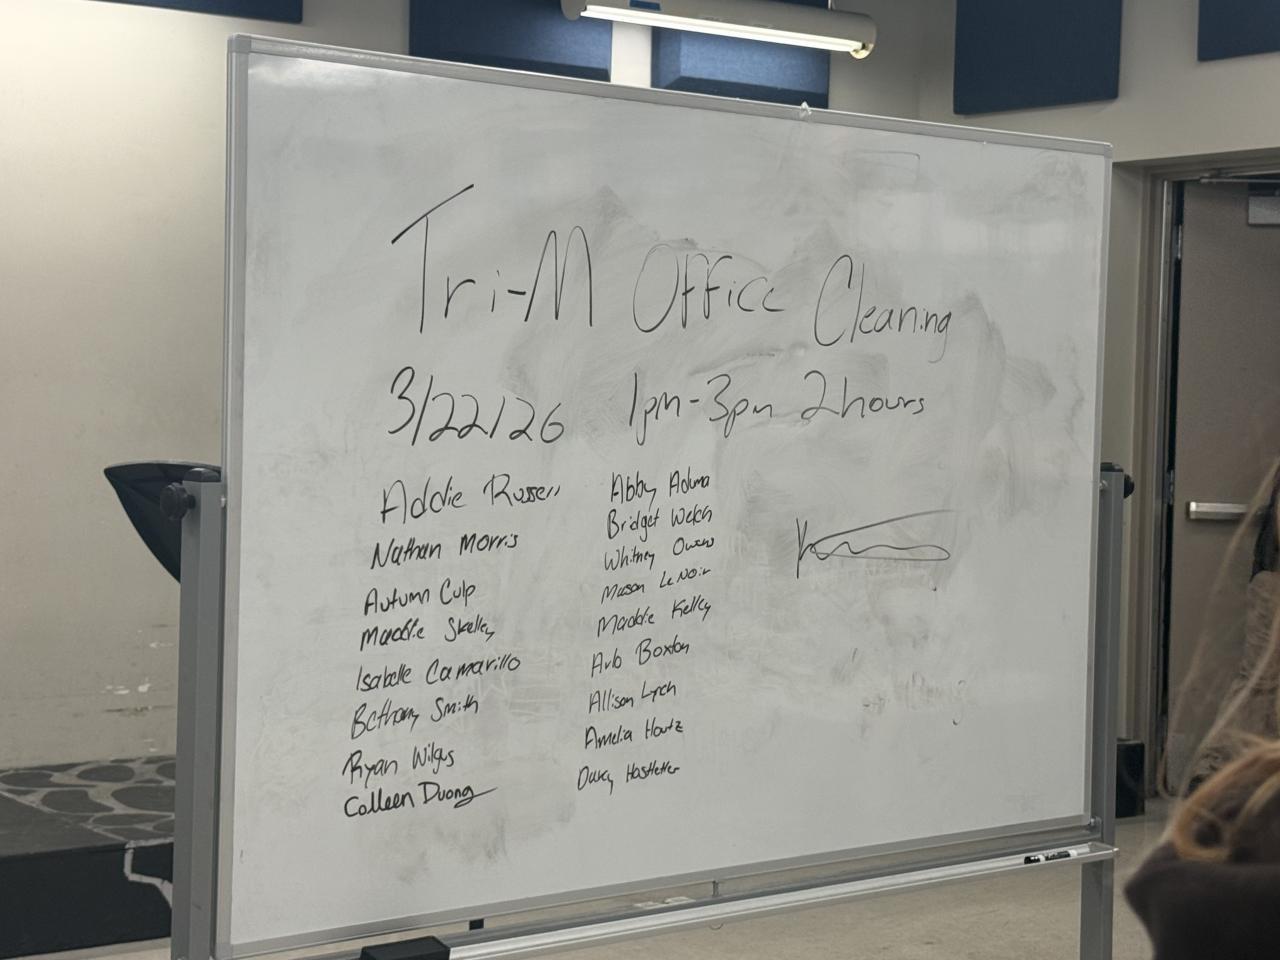 Tri-M Office Cleaning
3/22/26 1pm-3pm 2 hours
Addie Russell
Nathan Morris
Autumn Culp
Maddie Skelley
Isabelle Camarillo
Bethany Smith
Ryan Wilgus
Colleen Duong
Abby Aduma
Bridget Welch
Whitney Owens
Mason LeNoir
Maddie Kelley
Arlo Boxton
Allison Lynch
Amelia Houtz
Darcy Hostetter